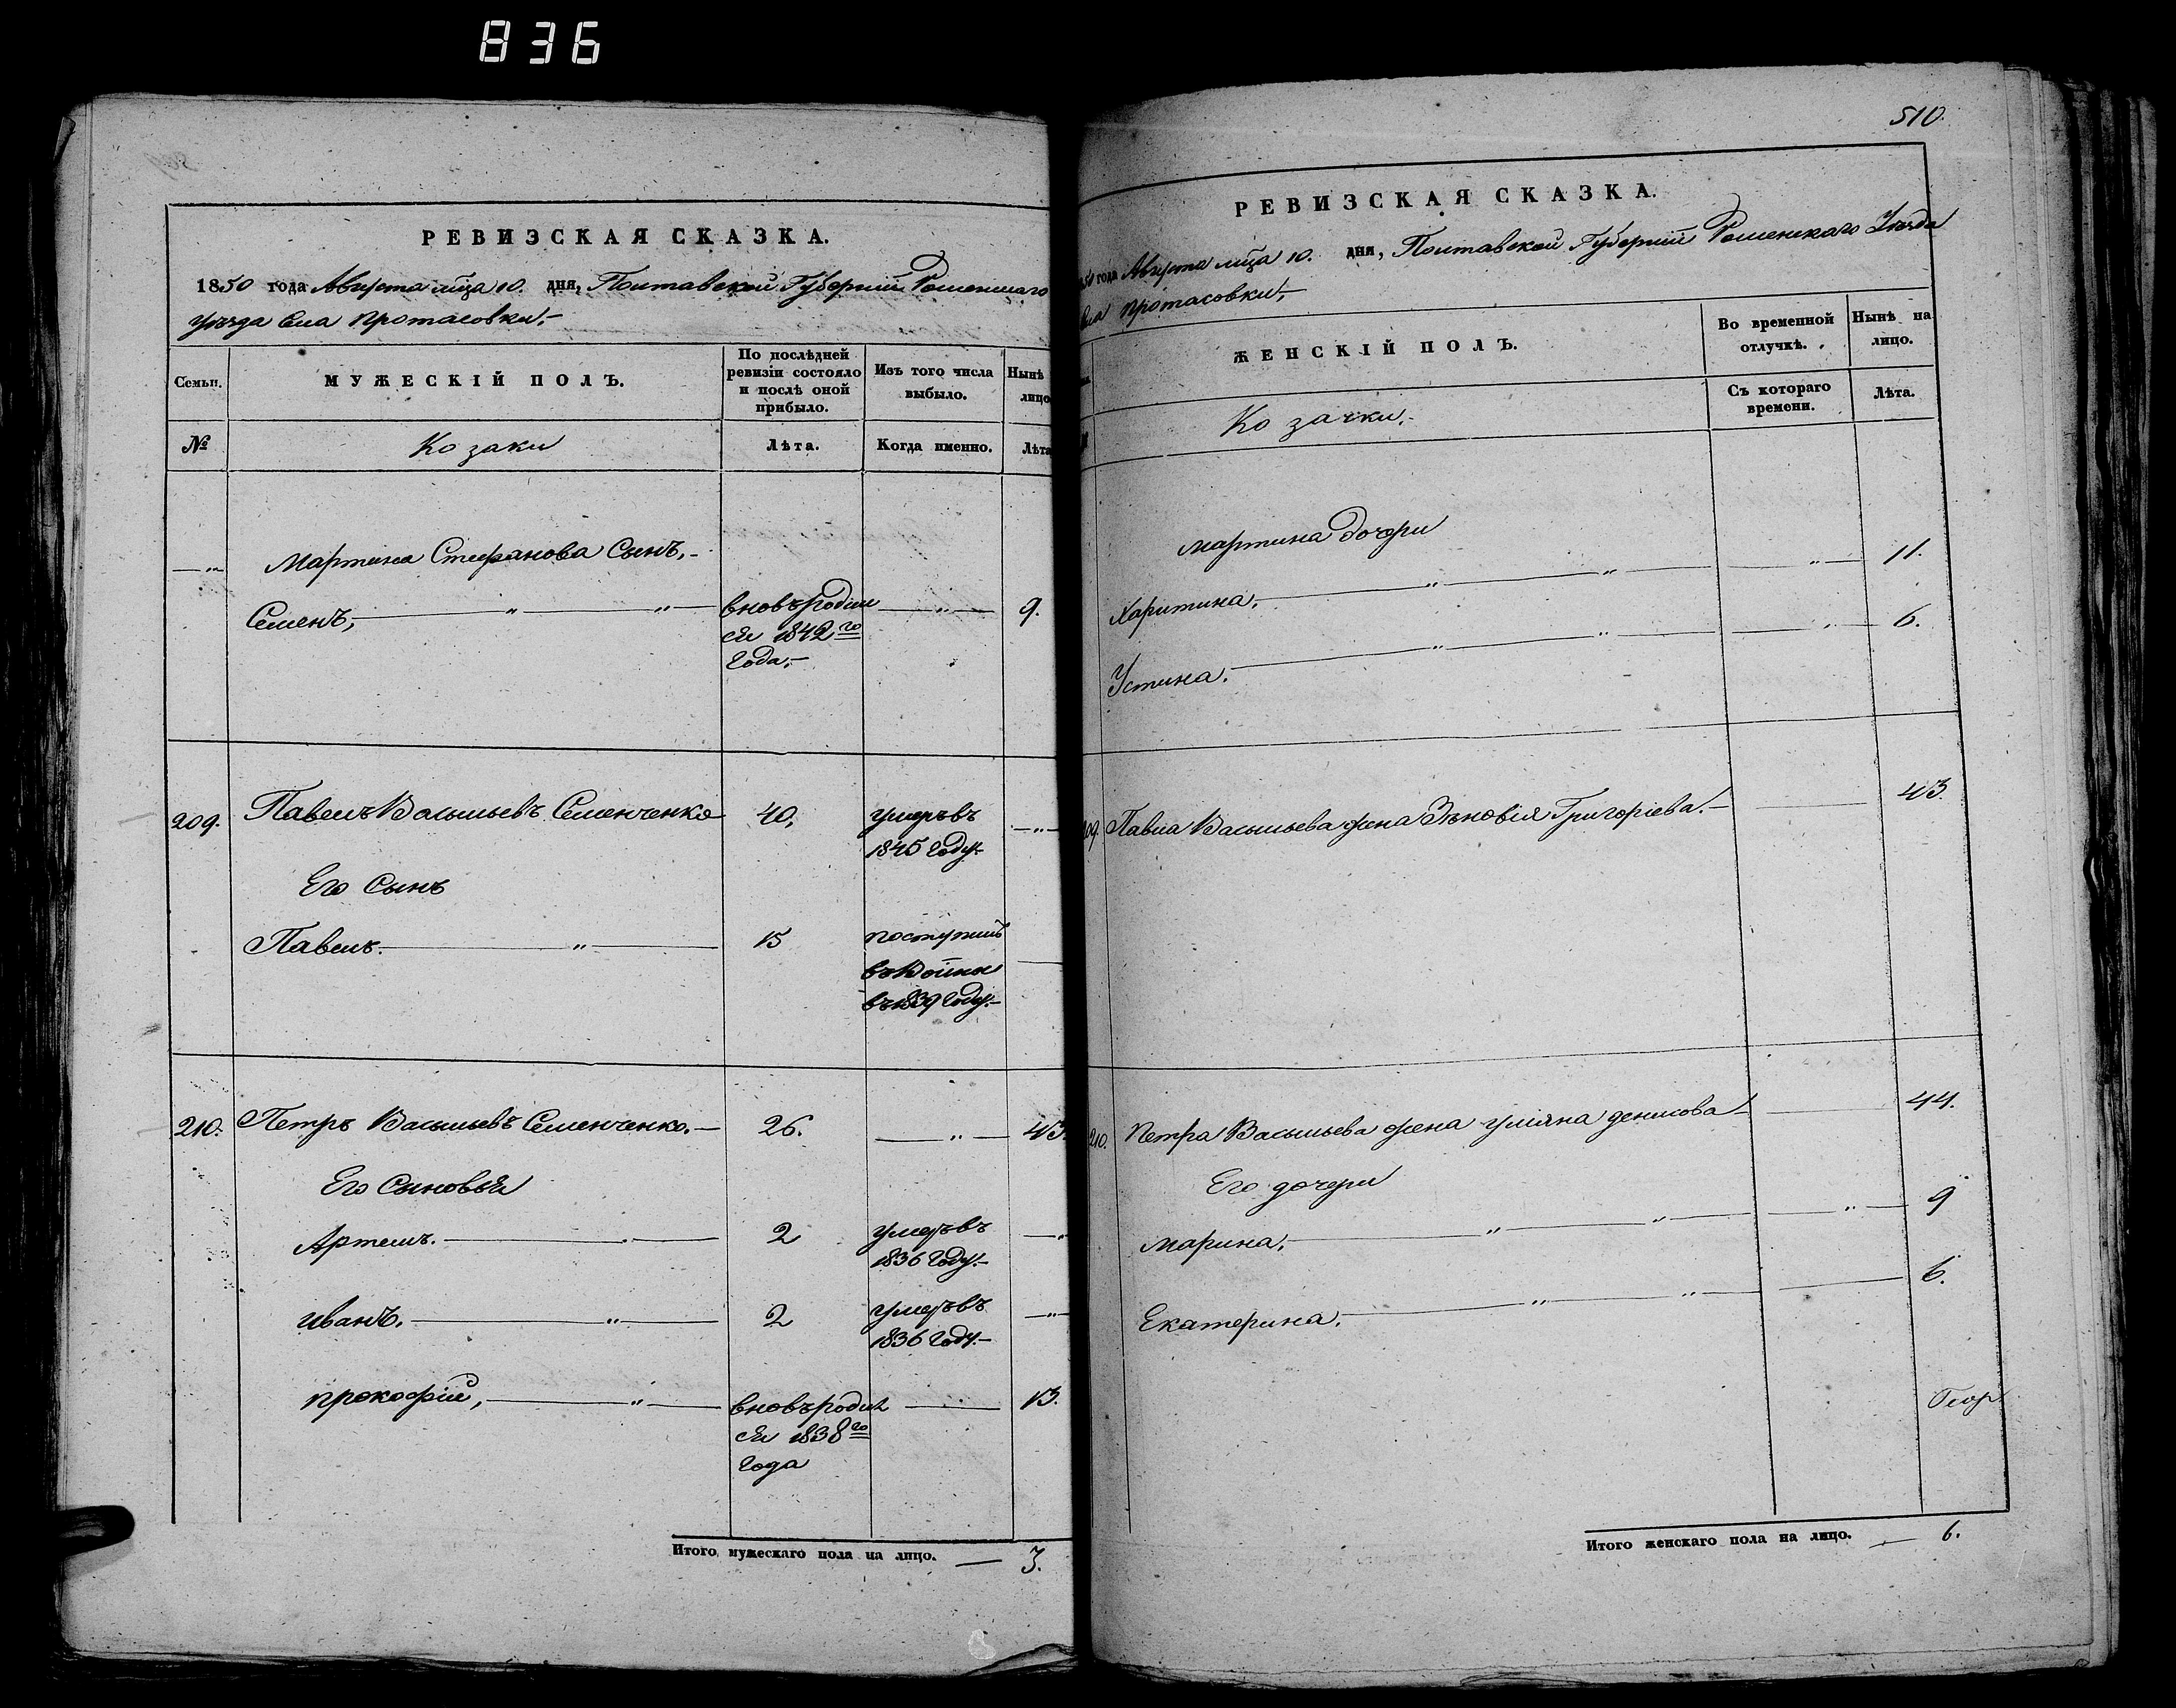 836
РЕВИЗСКАЯ СКАЗКА.
1850 года Августа мца 10. дня, Полтавской Губерніи Роменскаго
уѣзда Села Протасовки,
Семьи. МУЖЕСКІЙ ПОЛЪ. По послѣдней ревизіи состояло и послѣ оной прибыло. Изъ того числа выбыло. Нынѣ лицо
№ Козаки Лѣта. Когда именно. Лѣта
Мартина Стефанова Сынъ,
Семенъ, вновьродил 9.
ся 1842го
Года,
209. Павелъ Васильевъ Семенченко 40, умеръвъ
1845 Году
Его Сынъ
Павелъ. 15 поступилъ
въ
въ1839 Году.
210. Петръ Васильевъ Семенченко. 26. 43.
Его Сыновья
Артемъ. 2 умеръвъ
1836 Году.
иванъ. 2 умеръвъ
1836 Году.
прокофій, вновьродил 13.
ся 1838го
Года
Итого мужескаго пола на лицо. 3.
510.
РЕВИЗСКАЯ СКАЗКА.
50 года Августа мца 10. дня, Полтавской Губерніи Роменскаго Уѣзда
Села Протасовки,
ЖЕНСКІЙ ПОЛЪ. Во временной отлучкѣ. Нынѣ на лицо.
Козачки. Съ котораго времени. Лѣта.
Мартина Дочери
Харитина. 11.
Устина. 6.
209. Павла Васильева жена Зѣновія Григоріева. 43.
210. Петра Васильева жена уліяна денисова 44.
Его дочери
Марина. 9
Екатерина. 6.
Итого женскаго пола на лицо. 6.